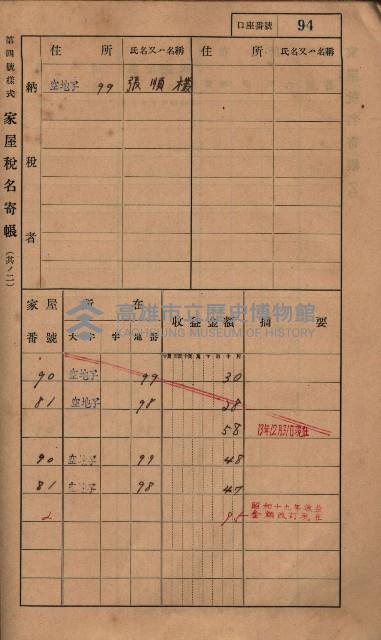 口座番號 94
第四號樣式 家屋稅名寄帳 (其ノ二)
納稅者
住所 氏名又ハ名稱 住所 氏名又ハ名稱
空地子 99 張順
家屋番號 所在 收益金額 摘要
大字 字 地番
90 空地子 99 30
81 空地子 98 28
58 19年12月31日現在
90 空地子 99 48
81 空地子 98 47
2 95 昭和十九年收益
金額改訂現在
高雄市立歷史博物館
KAOHSIUNG MUSEUM OF HISTORY